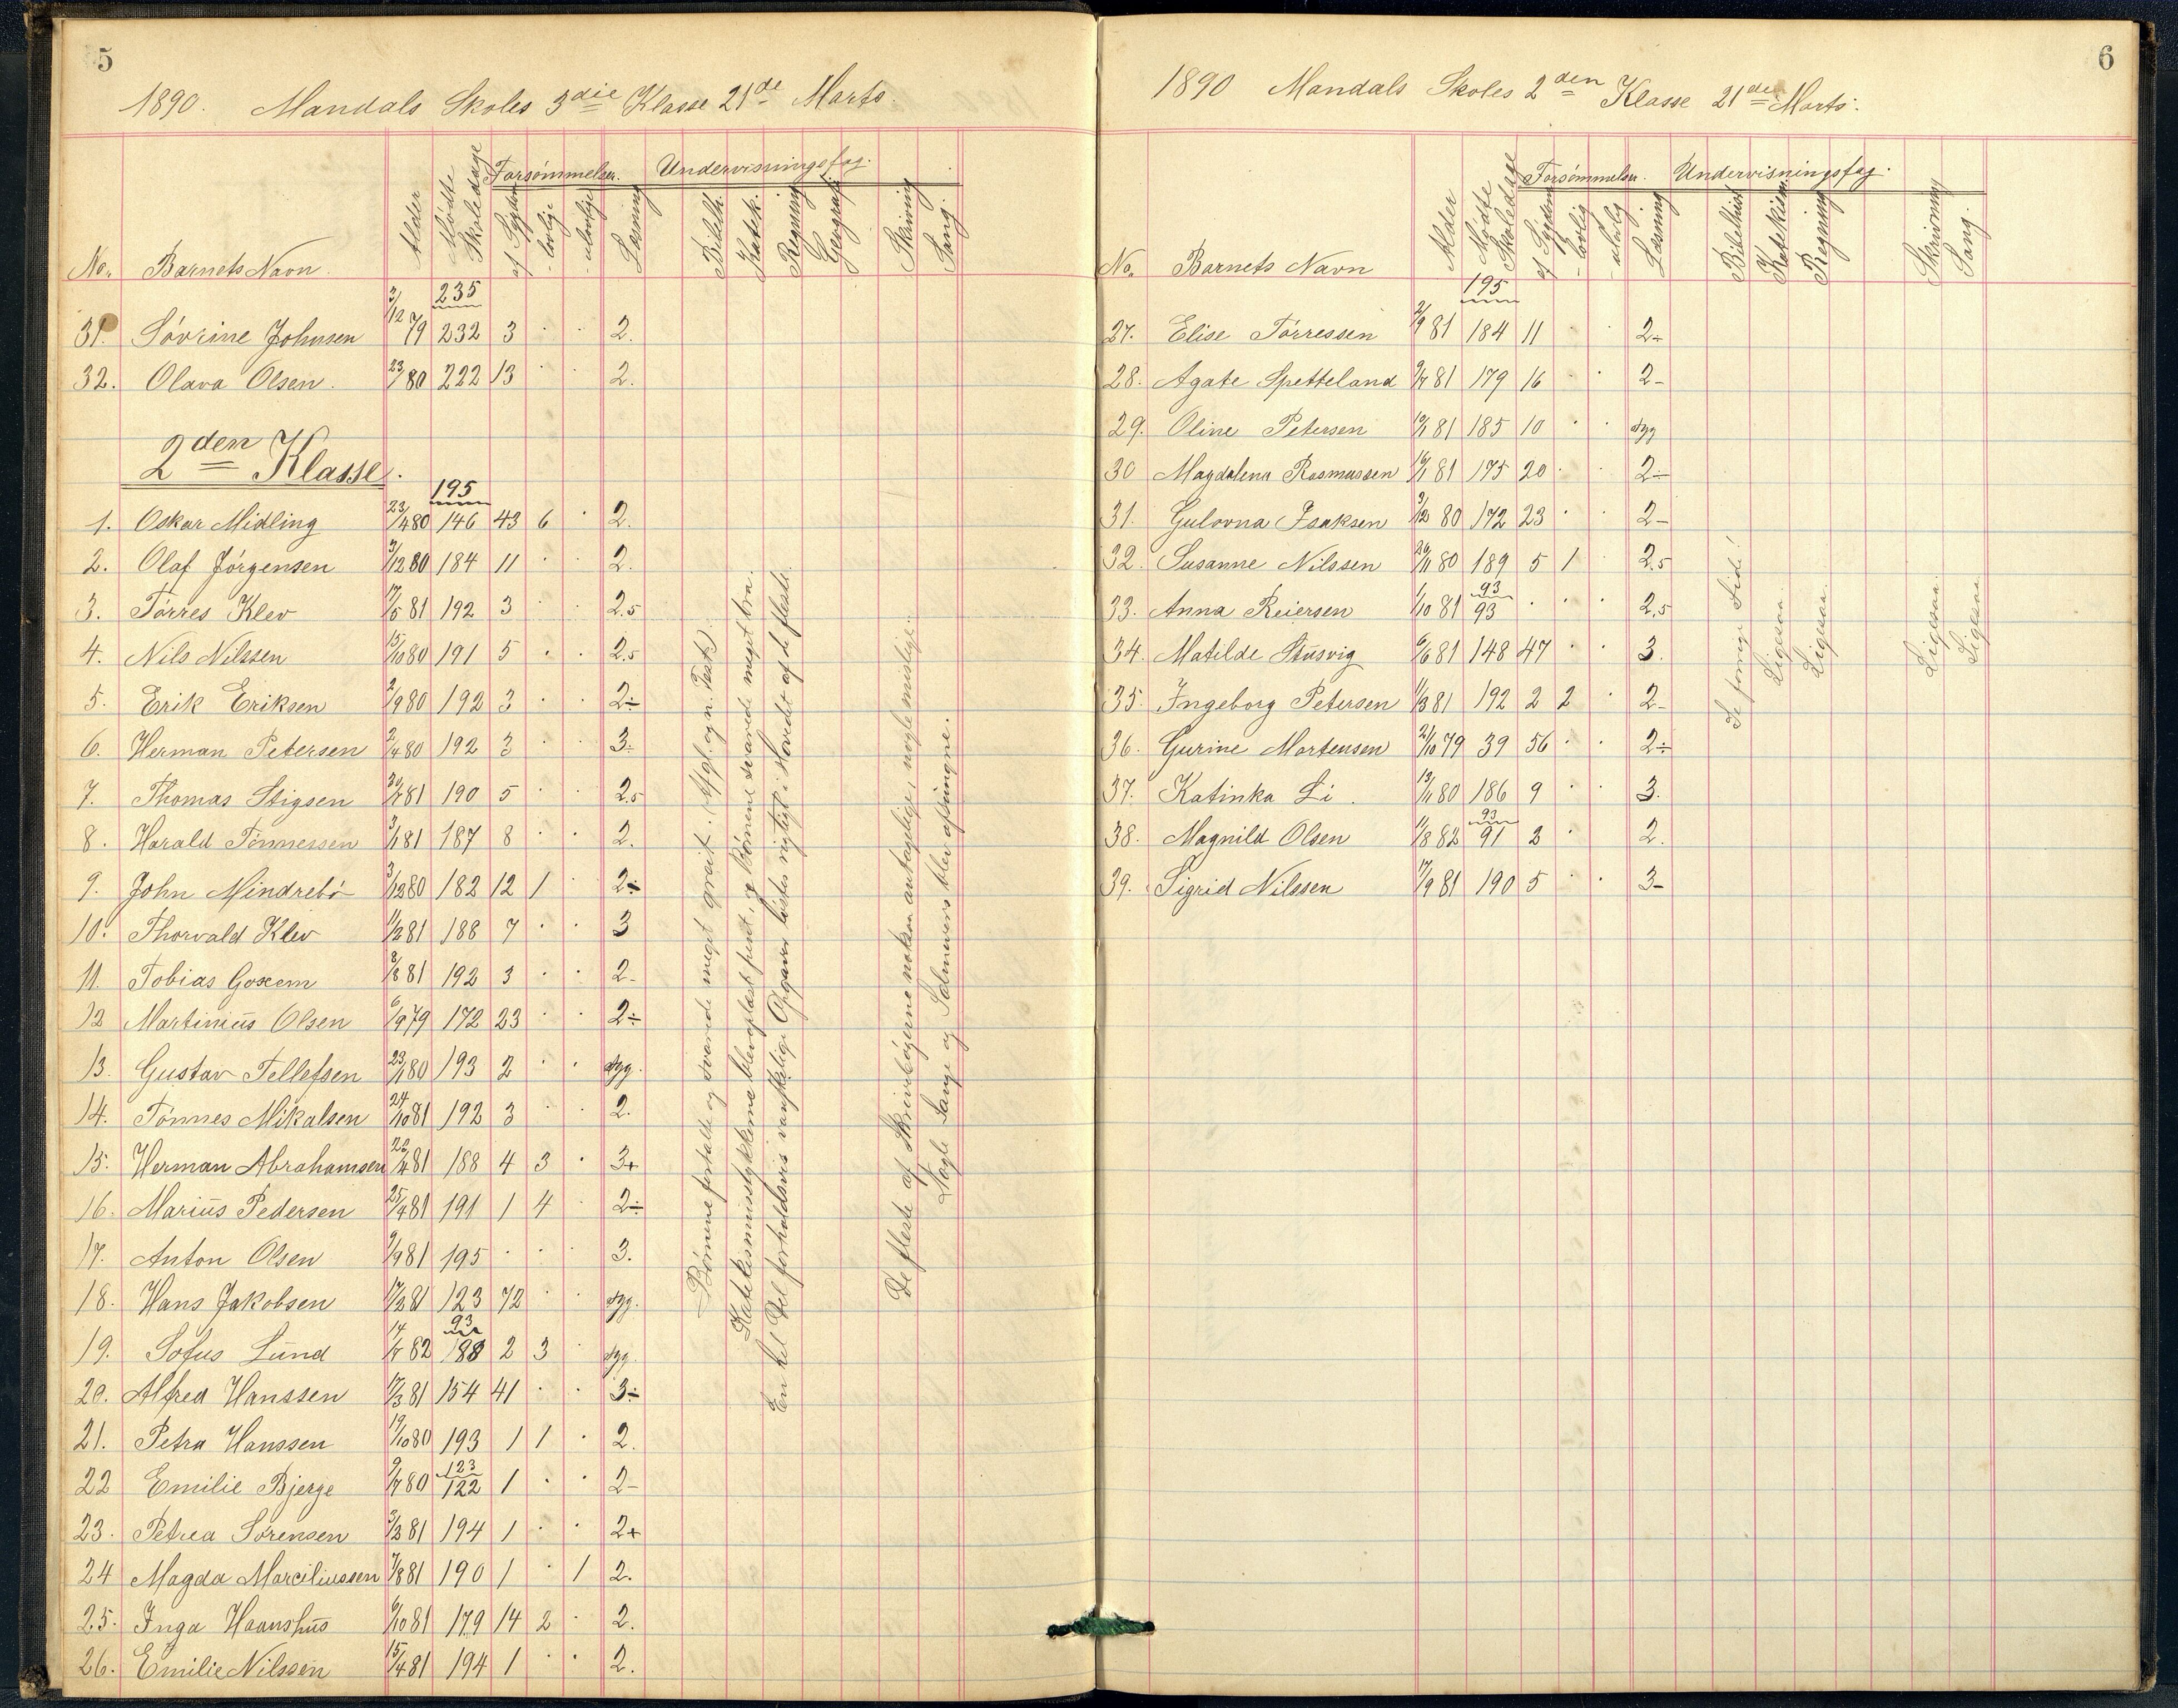 5
1890. Mandals Skoles 3die Klasse 21de Marts.
No. Barnets Navn. Alder Mødte Skoledage Forsømmelser. af Sygdom - lovlige - ulovlige Læsning Undervisningsfag. Bibelh. Katek. Regning Geografi Skrivning Sang.
235
31. Sørine Johnsen 3/12 79 232 3 · · 2.
32. Olava Olsen. 80 222 13 · · 2.
2den Klasse.
195
1. Oskar Midling 23/4 80 146 43 6 · 2.
2. Olaf Jørgensen 3/12 80 184 11 · · 2.
3. Tørres Klev 17/5 81 192 3 · · 2.5
4. Nils Nilssen 15/10 80 191 5 · · 2.5
5. Erik Eriksen 2/9 80 192 3 · · 2÷
6. Herman Petersen 2/4 80 192 3 · · 3÷
7. Thomas Stigsen 81 190 5 · · 2.5
8. Harald Tønnessen 3/1 81 187 8 · · 2.
9. John Mindrebø 3/12 80 182 12 1 2÷
10. Thorvald Klev 11/2 81 188 7 · · 3
11. Tobias Goxem 8/8 81 192 3 · · 2-
12 Martinius Olsen 6/9 79 172 23 · · 2÷
13. Gustav Tellefsen 23/1 80 193 2 · · syg.
14. Tønnes Mikalsen 24/10 81 192 3 · · 2.
15. Herman Abrahamsen 22/4 81 188 4 3 · 3+
16. Marius Pedersen 25/4 81 191 1 4 · 2÷
17. Anton Olsen 9/9 81 195 · · · 3.
18. Hans Jakobsen 17/2 81 123 72 · · syg.
93
19. Sofus Lund 82 188 2 3 · syg.
20. Alfred Hanssen 17/3 81 154 41 · · 3÷
21. Petra Hanssen 19/10 80 193 1 1 · 2.
123
22 Emilie Bjerge 80 122 1 · · 2-
23. Petrea Sørensen 3/2 81 194 1 · · 2+
24 Magda Marciliussen 7/8 81 190 1 · 1 2.
25. Inga Haanshus 6/10 81 179 14 2 · 2.
26. Emilie Nilssen 15/4 81 194 1 · · 2.
Børnene fortalte og svarede meget greit. (Afgl. og n. Test.)
Katekismusstykkerne blev oplæst pent, og Børnene svarede meget bra.
En hel Del forholdsvis vanskelige Opgaver løstes rigtigt i Hovedet af de fleste.
De fleste af Skrivebøgerne nokså antagelige, nogle mislige.
Nogle Sange og Salmevers blev afsungne.
6
1890 Mandals Skoles 2den Klasse 21de Marts.
No. Barnets Navn Alder Mødte Skoledage Forsømmelser. af Sygdom - lovlig - ulovlig Læsning Undervisningsfag. Bibelhist. Katekism. Regning Skrivning Sang.
195
27. Elise Tørressen 2/9 81 184 11 · · 2+
28. Agate Spetteland 81 179 16 · · 2-
29. Oline Petersen 81 185 10 · · syg
30 Magdalena Rasmussen 16/1 81 175 20 · · 2÷
31. Gulovna Isaksen 3/12 80 172 23 · · 2-
32. Susanne Nilssen 80 189 5 1 · 2.5
93
33. Anna Reiersen 1/10 81 93 · · · 2.5
34. Matilde Stusvig 6/6 81 148 47 · · 3.
35. Ingeborg Petersen 11/3 81 192 2 2 · 2-
36. Gurine Mortensen 2/10 79 39 56 · · 2÷
37. Katinka Li. 13/11 80 186 9 · · 3.
93
38. Magnild Olsen 11/8 82 91 2 · 2.
39. Sigrid Nilssen 17/9 81 190 5 · · 3-
Se forrige Side!
Ligesaa.
Ligesaa.
Ligesaa.
Ligesaa